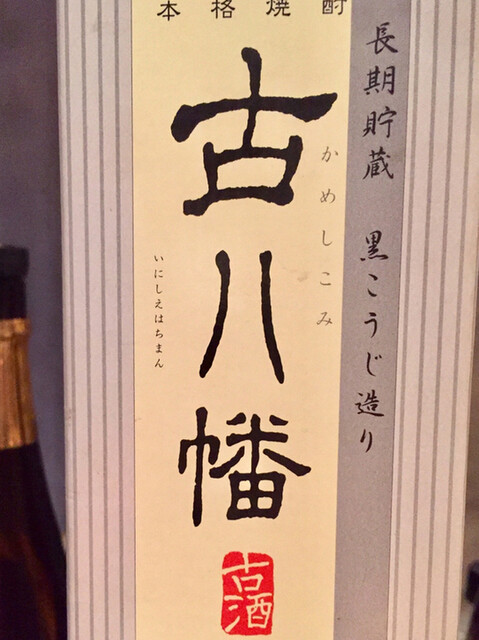 本格焼酎
長期貯蔵 黒こうじ造り
かめしこみ
古八幡
いにしえはちまん
古酒